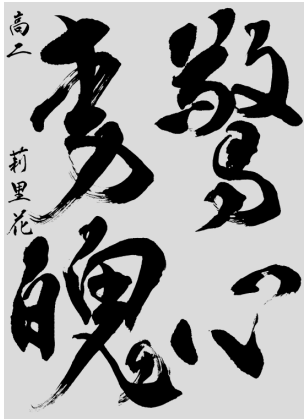 驚心
動魄
高二 莉里花